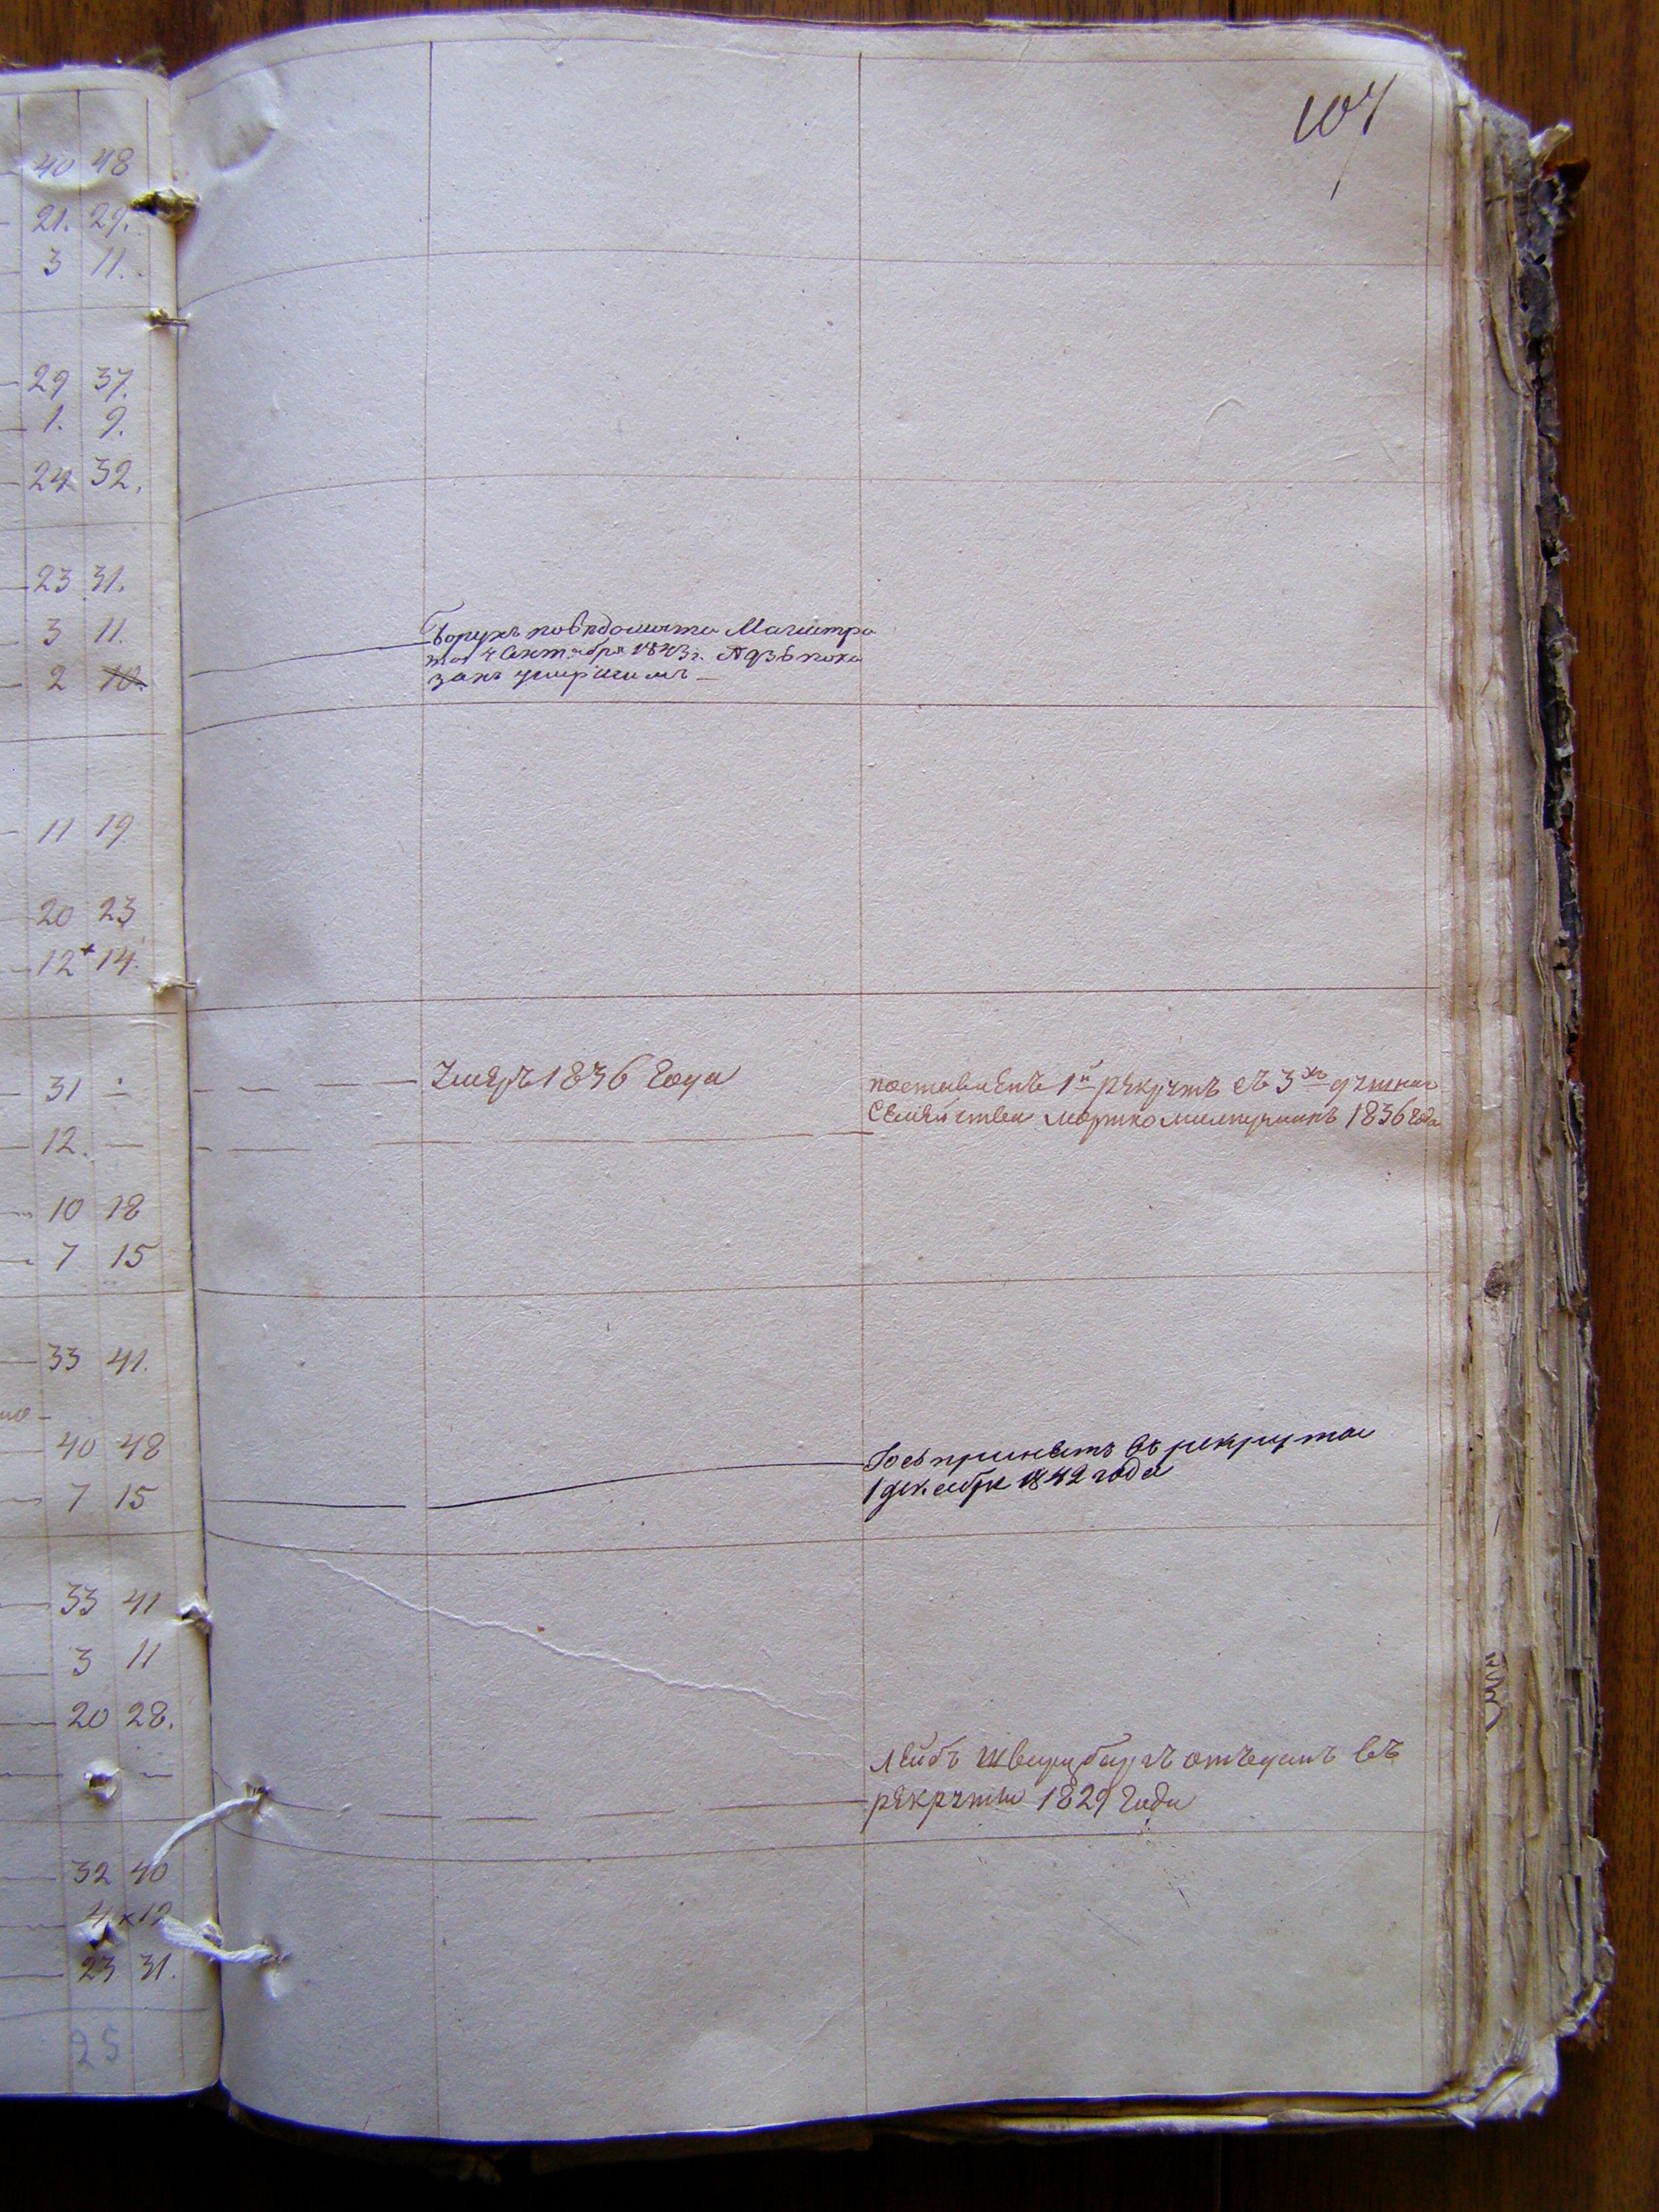 107
40 48
21. 29.
3 11.
29 37.
1. 9.
24 32.
23 31.
3 11.
2 10.
Борухъ по вѣдомости Магистра
та 4 Октября 1843 г. пока
занъ умершимъ
11 19
20 23
12 14.
31
умеръ 1836 года
поставленъ 1й рекрутъ съ 3хъ
Семейства Мортко 1836 года
12. —
10 18
7 15
33 41.
40 48
7 15
принятъ въ рекруты
1 декабря 1842 года
33 41
3 11
20 28.
Лейбъ Шварцбургъ отъданъ въ
рекруты 1829 года
32 40
4 x 12
23 31.
25